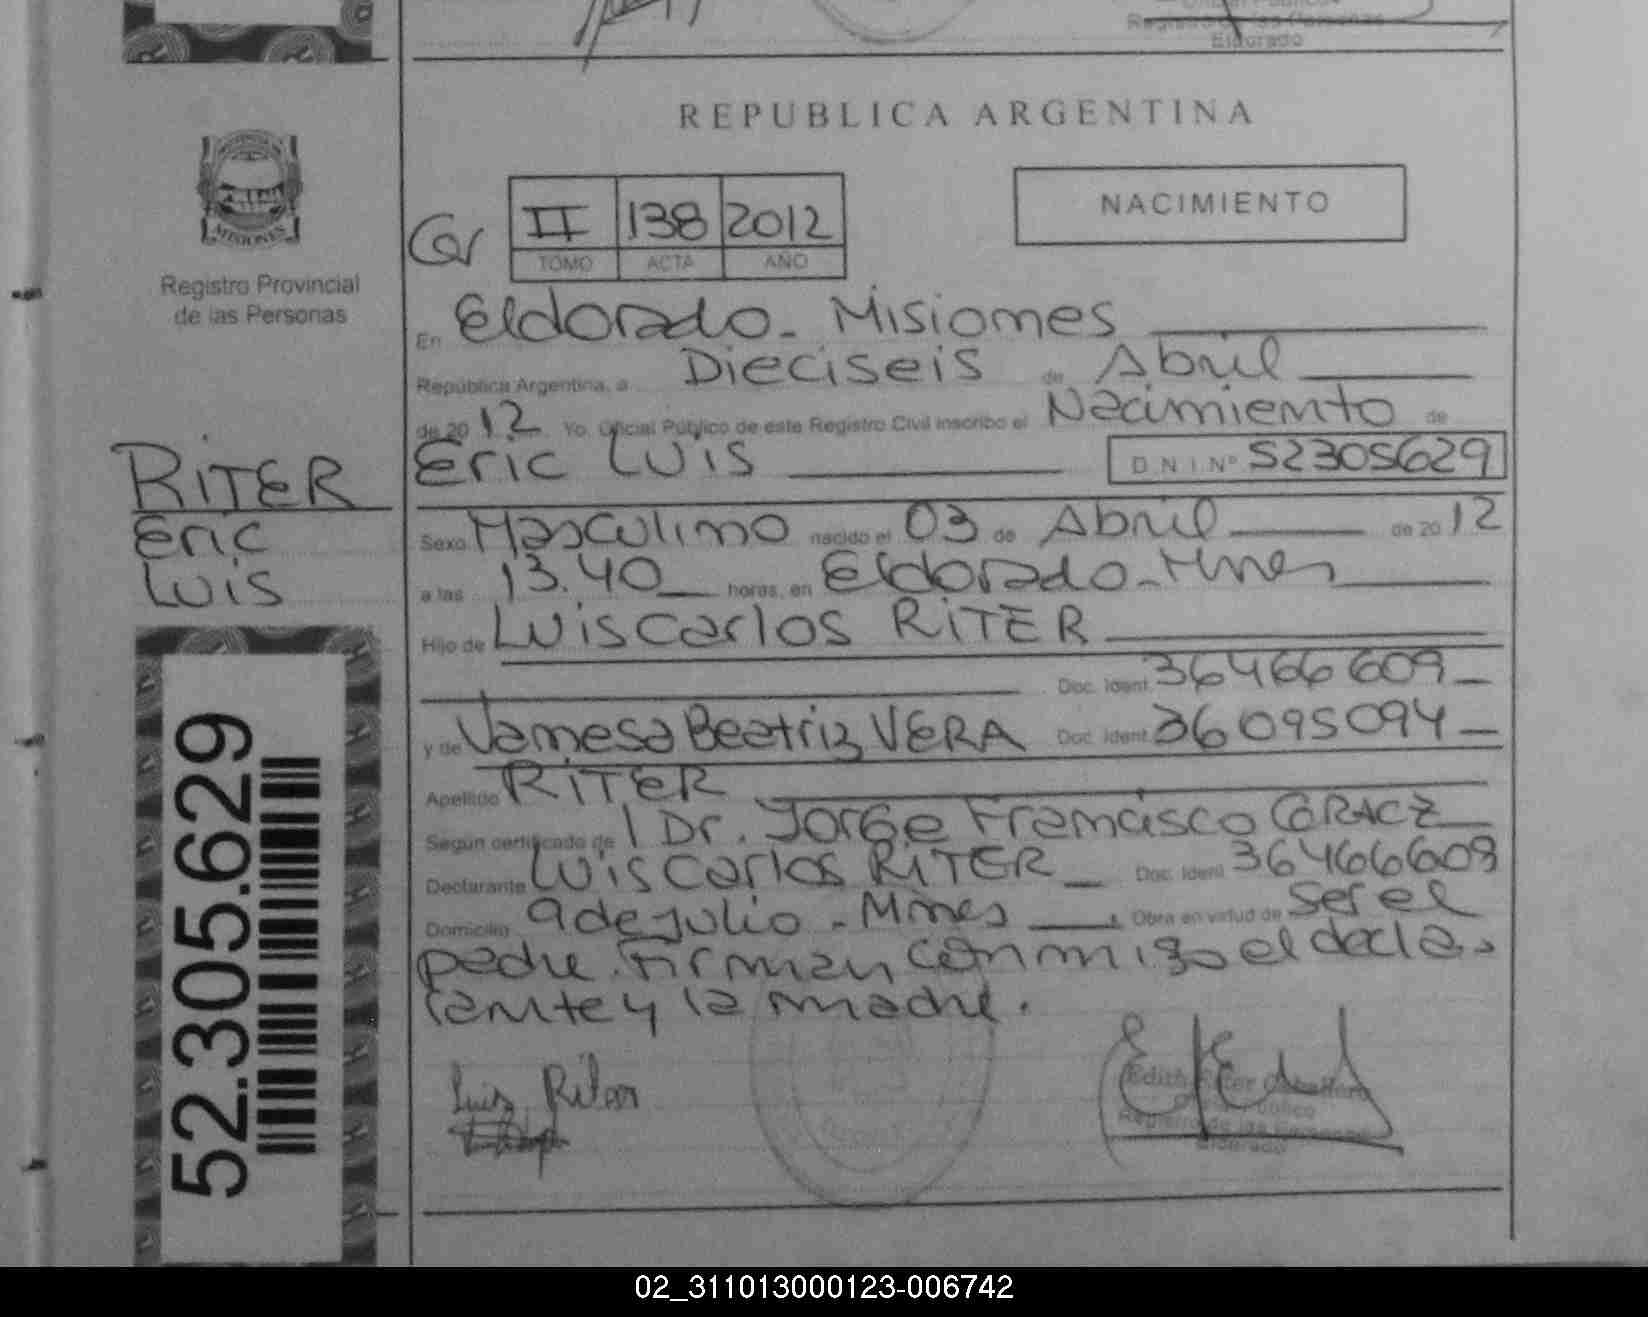 Registro de las Personas
Eldorado
REPUBLICA ARGENTINA
NACIMIENTO
MISIONES
Registro Provincial
de las Personas
Car II 138 2012
TOMO ACTA AÑO
En Eldorado - Misiones
República Argentina, a Dieciseis de Abril
de 20 12 Yo, Oficial Público de este Registro Civil inscribo el Nacimiento de
Eric Luis D.N.I. Nº 52305629
RITER
Eric
Luis
Sexo Masculino nacido el 03 de Abril de 20 12
a las 13.40 horas, en Eldorado - Mnes
Hijo de Luis Carlos RITER
Doc. Ident. 36466609
y de Vanesa Beatriz VERA Doc. Ident. 36095094
Apellido RITER
Según certificado de 1 Dr. Jorge Francisco
Declarante Luis Carlos RITER Doc. Ident. 36466609
Domicilio 9 de Julio - Mnes Obra en virtud de Ser el
padre. Firman conmigo el decla-
rante y la madre.
52.305.629
Luis Riter
Edith
Registro de las Personas
Eldorado
02_311013000123-006742